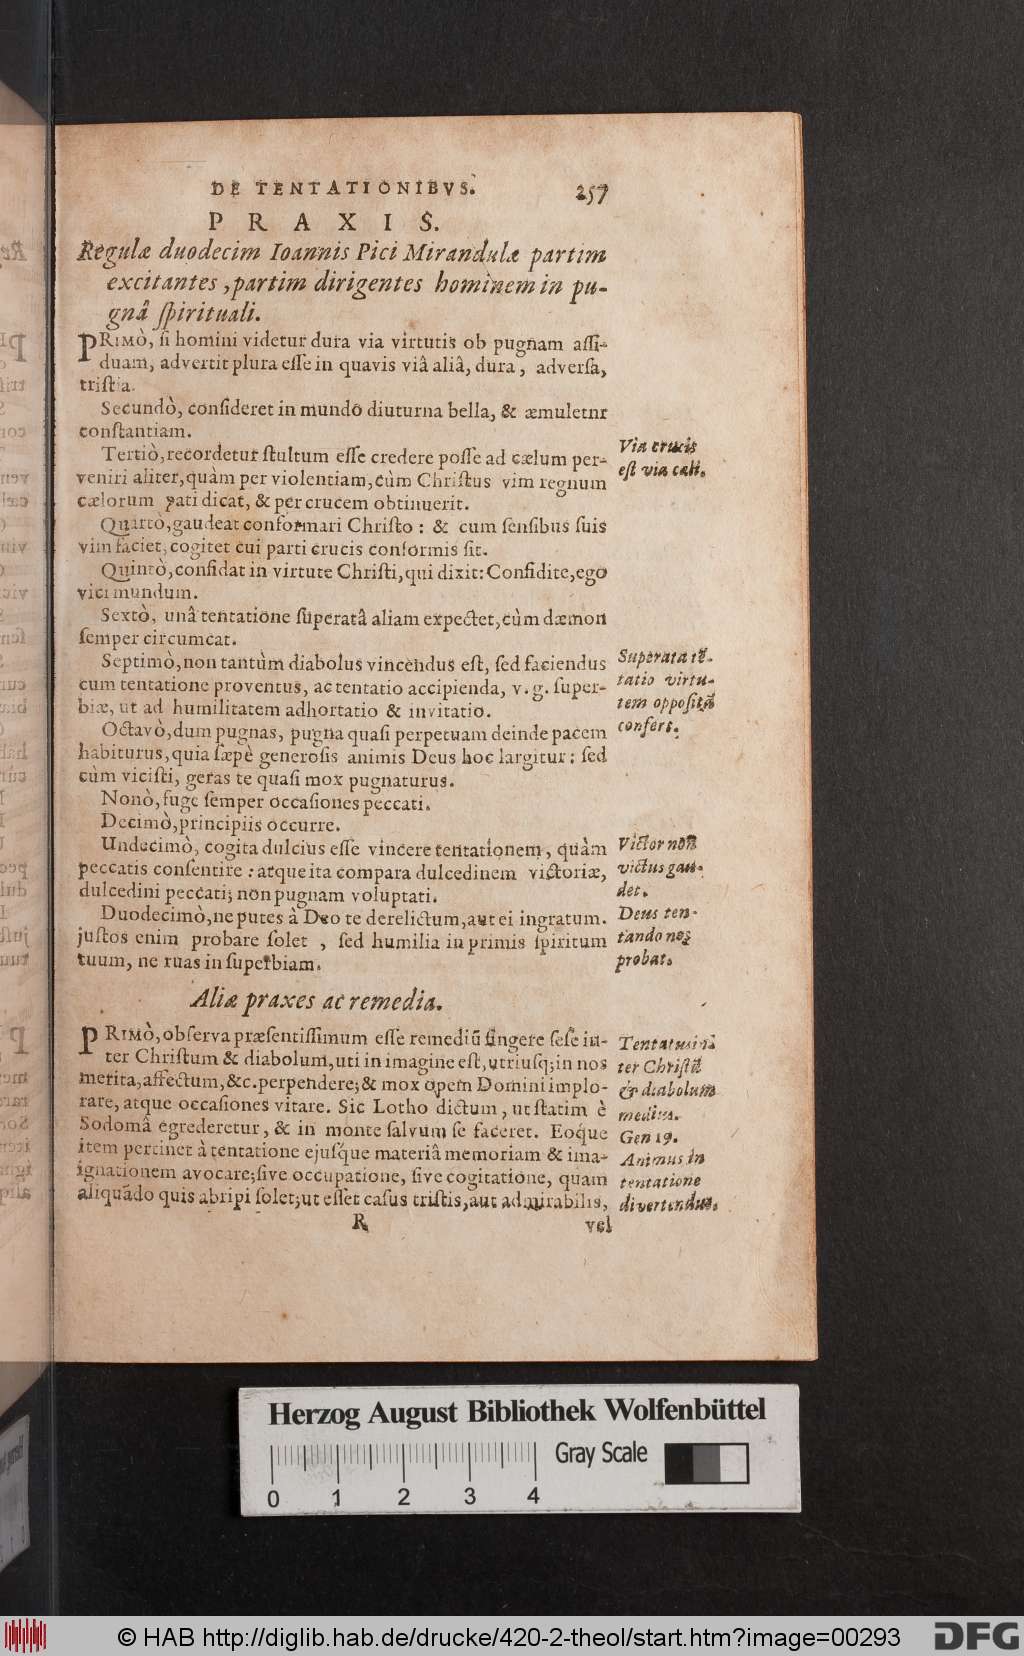 DE TENTATIONIBVS. 257
PRAXIS.
Regulæ duodecim Ioannis Pici Mirandulæ partim
excitantes, partim dirigentes hominem in pu-
gnâ spirituali.
PRIMÒ, si homini videtur dura via virtutis ob pugnam assi-
duam, advertit plura esse in quavis viâ aliâ, dura, adversa,
tristia.
Secundò, consideret in mundo diuturna bella, & æmuletnr
constantiam.
Tertiò, recordetur stultum esse credere posse ad cælum per-
veniri aliter, quàm per violentiam, cùm Christus vim regnum
cælorum pati dicat, & per crucem obtinuerit.
Via crucis
est via cæli.
Quartò, gaudeat conformari Christo: & cum sensibus suis
vim faciet, cogitet cui parti crucis conformis sit.
Quintò, confidat in virtute Christi, qui dixit: Confidite, ego
vici mundum.
Sextò, unâ tentatione superatâ aliam expectet, cùm dæmon
semper circumeat.
Septimò, non tantùm diabolus vincendus est, sed faciendus
cum tentatione proventus, ac tentatio accipienda, v. g. super-
biæ, ut ad humilitatem adhortatio & invitatio.
Superata tē-
tatio virtu-
tem oppositā
confert.
Octavò, dum pugnas, pugna quasi perpetuam deinde pacem
habiturus, quia sæpè generosis animis Deus hoc largitur: sed
cùm vicisti, geras te quasi mox pugnaturus.
Nonò, fuge semper occasiones peccati.
Decimò, principiis occurre.
Undecimò, cogita dulcius esse vincere tentationem, quàm
peccatis consentire: atque ita compara dulcedinem victoriæ,
dulcedini peccati; non pugnam voluptati.
Victor non
victus gau-
det.
Duodecimò, ne putes à Deo te derelictum, aut ei ingratum.
justos enim probare solet, sed humilia in primis spiritum
tuum, ne ruas in superbiam.
Deus ten-
tando nos
probat.
Aliæ praxes ac remedia.
PRIMÒ, observa præsentissimum esse remediū fingere sese in-
ter Christum & diabolum, uti in imagine est, utriusq; in nos
merita, affectum, &c. perpendere; & mox opem Domini implo-
rare, atque occasiones vitare. Sic Lotho dictum, ut statim è
Sodomâ egrederetur, & in monte salvum se faceret. Eoque
item pertinet à tentatione ejusque materiâ memoriam & ima-
ignationem avocare; sive occupatione, sive cogitatione, quam
aliquādo quis abripi solet; ut esset casus tristis, aut admirabilis,
Tentatus in-
ter Christū
& diabolum
medius.
Gen 19.
Animus in
tentatione
divertendus.
R vel
Herzog August Bibliothek Wolfenbüttel
Gray Scale
0 1 2 3 4
© HAB http://diglib.hab.de/drucke/420-2-theol/start.htm?image=00293
DFG